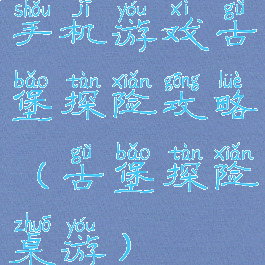 shǒu jī yóu xì gǔ
手机游戏古
bǎo tàn xiǎn gōng lüè
堡探险攻略
gǔ bǎo tàn xiǎn
（古堡探险
zhuō yóu
桌游）